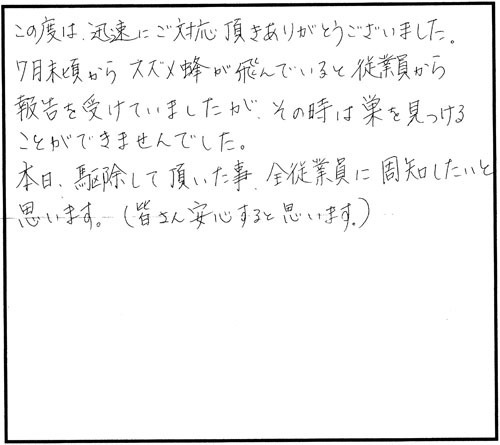 この度は、迅速にご対応頂きありがとうございました。
7月末頃から スズメ蜂が飛んでいると従業員から
報告を受けていましたが、その時は巣を見つける
ことができませんでした。
本日、駆除して頂いた事、全従業員に周知したいと
思います。(皆さん安心すると思います。)